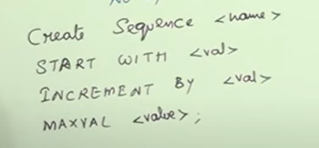 Create Sequence <name>
START WITH <val>
INCREMENT BY <val>
MAXVAL <value>;